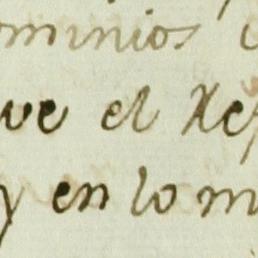 ominios
ve el Xef
y en lo m